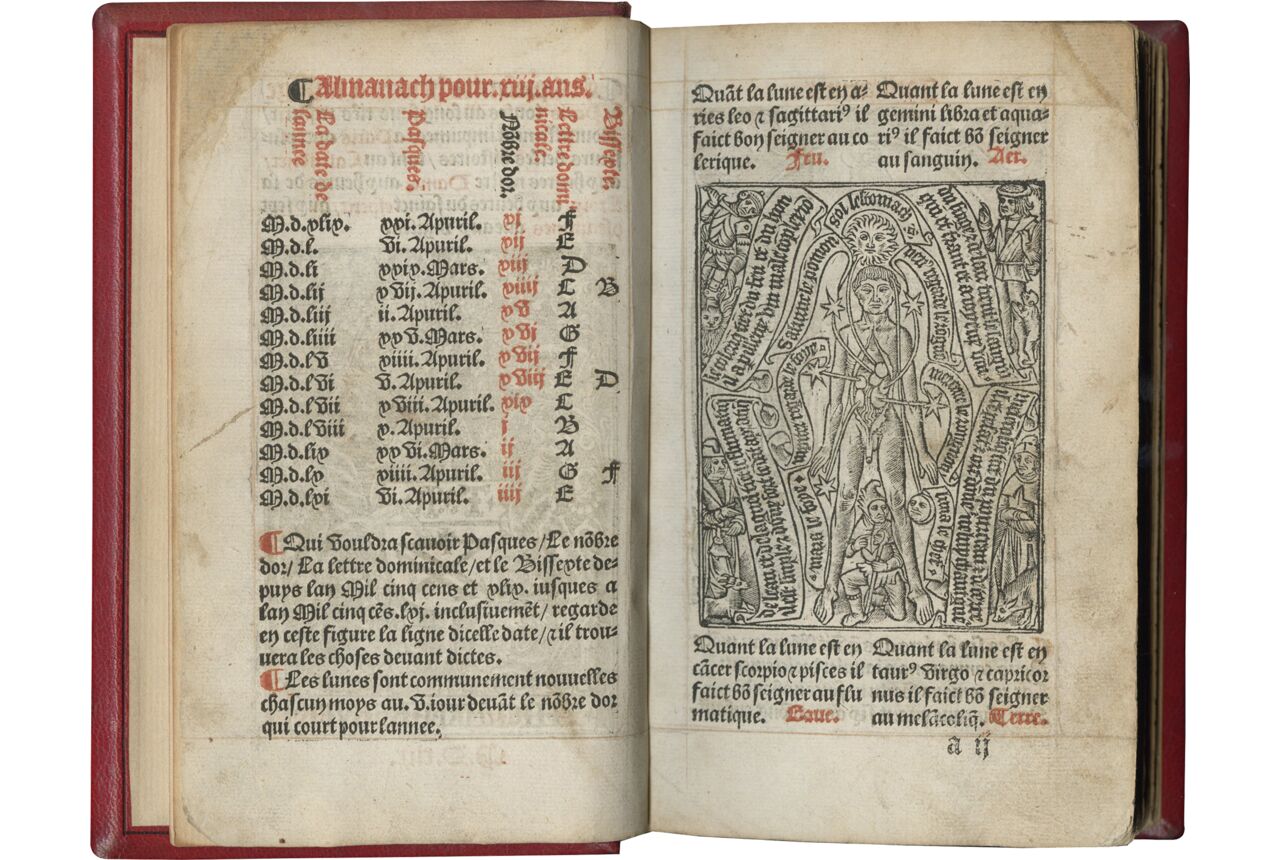 ¶ Almanach pour. xiij. ans.
La date de
lannee
Pasques.
Nõbre dor.
Lettre domi
nicale.
Bissexte.
M.d.xlix. xxi. Apuril. xi F
M.d.l. vi. Apuril. xij E
M.d.li xxix. Mars. xiij D
M.d.lij xvij. Apuril. xiiij C B
M.d.liij ii. Apuril. xv A
M.d.liiii xxv. Mars. xvj G
M.d.lv xiiii. Apuril. xvij F
M.d.lvi v. Apuril. xviij E D
M.d.lvii xviii. Apuril. xix C
M.d.lviii x. Apuril. j B
M.d.lix xxvi. Mars. ij A
M.d.lx xiiii. Apuril. iij G F
M.d.lxi vi. Apuril. iiij E
¶ Qui vouldra scauoir Pasques/ Le nõbre
dor/ La lettre dominicale/ et le Bissexte de-
puys lan Mil cinq cens et xlix. iusques a
lan Mil cinq cẽs. lxj. inclusiuemẽt/ regarde
en ceste figure la ligne dicelle date/ ⁊ il trou-
uera les choses deuant dictes.
¶ Les lunes sont communement nouuelles
chascun moys au. v. iour deuãt le nõbre dor
qui court pour lannee.
Quãt la lune est en a-
ries leo ⁊ sagittariꝰ il
faict bon seigner au co
lerique. Feu.
Quant la lune est en
gemini libra et aqua-
riꝰ il faict bõ seigner
au sanguin. Aer.
Sol lestomach
Saturne le poumon
mars et foye
luna le chef
Quant la lune est en
cãcer scorpio ⁊ pisces il
faict bõ seigner au flu
matique. Eaue.
Quant la lune est en
taurꝰ virgo ⁊ capricor
nus il faict bõ seigner
au melãcoliq̃. Terre.
a ij